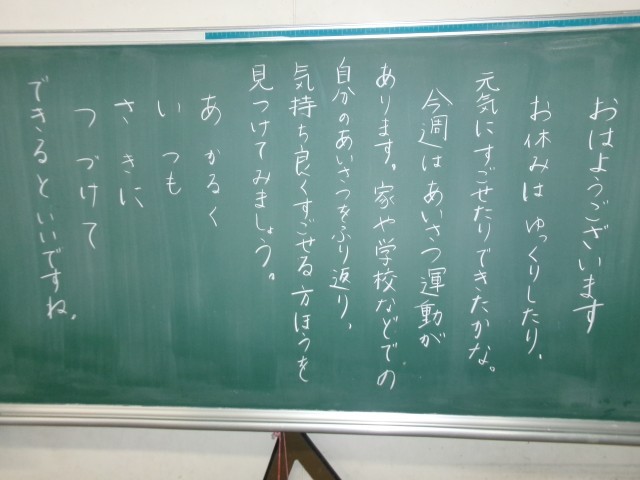 おはようございます
お休みはゆっくりしたり、
元気にすごせたりできたかな。
今週はあいさつ運動が
あります。家や学校などでの
自分のあいさつをふり返り、
気持ち良くすごせる方ほうを
見つけてみましょう。
あかるく
いつも
さきに
つづけて
できるといいですね。